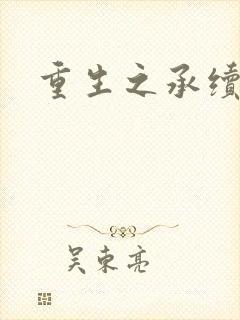 重生之承续
吴东亮